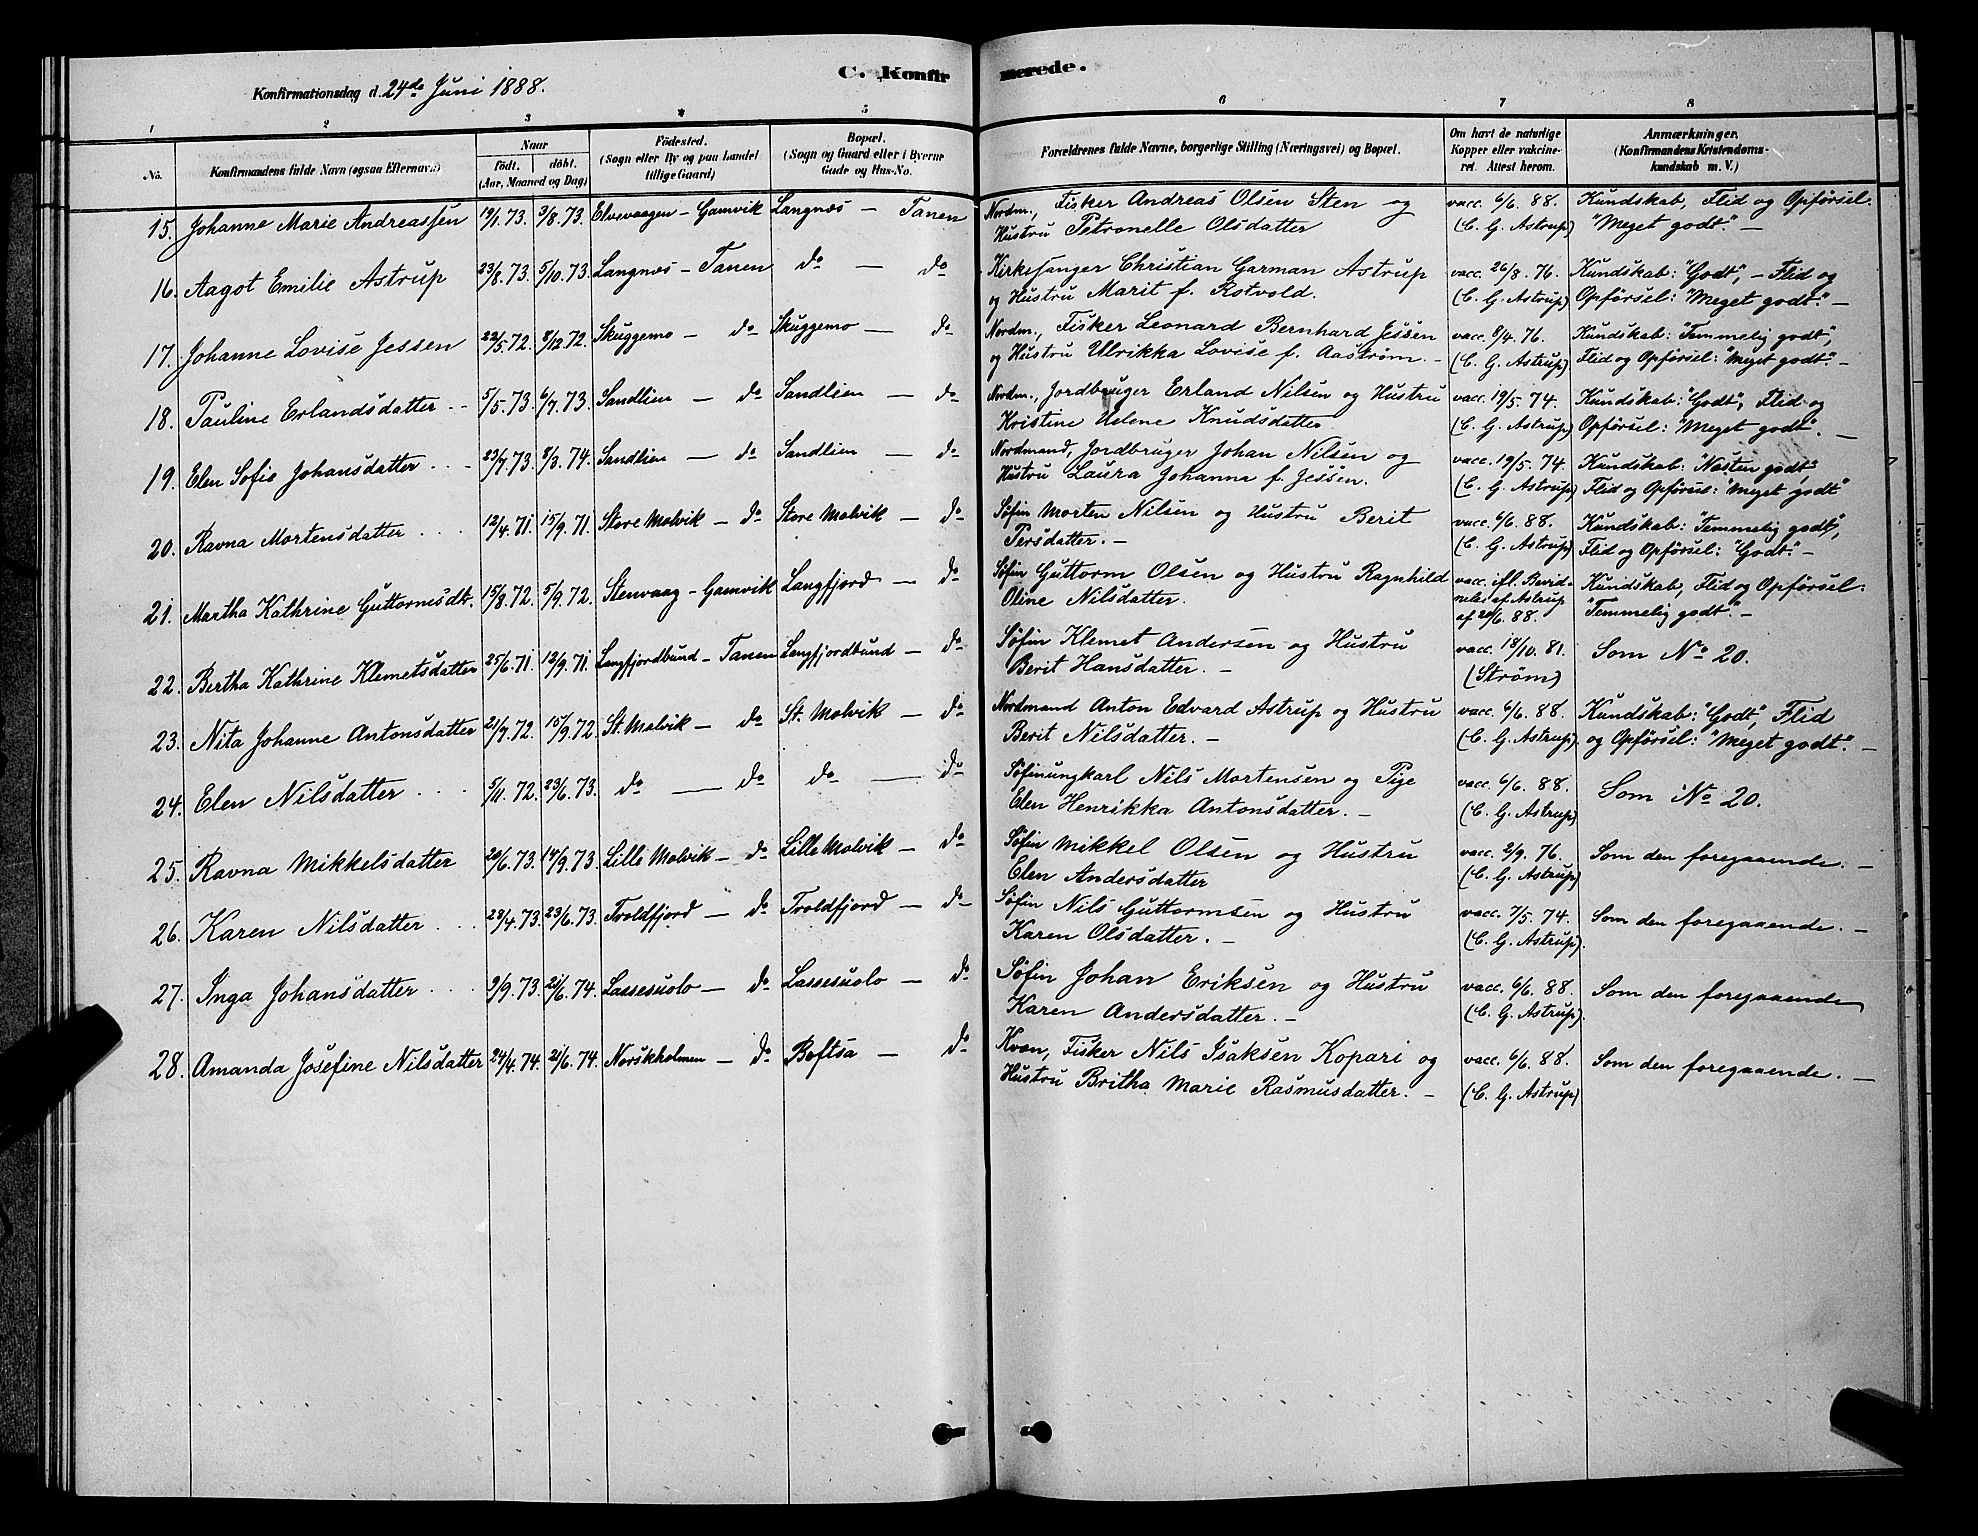 C. Konfirmerede.
Konfirmationsdag d. 24de Juni 1888.
1 2 3 4 5 6 7 8
No. Konfirmandens fulde Navn (ogsaa Efternavn.) Naar Födt. döbt. (Aar, Maaned og Dag) Födested. (Sogn eller By og paa Landet tillige Gaard) Bopæl. (Sogn og Gaard eller i Byerne Gade og Hus-No. Forældrenes fulde Navne, borgerlige Stilling (Næringsvei) og Bopæl. Om havt de naturlige Kopper eller vakcineret. Attest herom. Anmærkninger. (Konfirmandens Kristendomskundskab m. V.)
15. Johanne Marie Andreassen 19/1.73. 3/8.73. Elvevaagen - Gamvik Langnæs - Tanen Nordm., Fisker Andreas Olsen Sten og vacc. 6/6. 88. Kundskab, Flid og Opförsel.
Hustru Petronelle Olsdatter (C. G. Astrup) "Meget godt." -
16. Aagot Emilie Astrup 23/8.73. 5/10.73. Langnæs - Tanen do - do Kirkesanger Christian Garman Astrup vacc. 26/8. 76. Kundskab: "Godt", - Flid og
og Hustru Marit f. Rotvold. (C. G. Astrup) Opförsel: "Meget godt." -
17. Johanne Lovise Jessen 22/5.72. 8/12.72. Skuggemo - do Skuggemo - do Nordm., Fisker Leonard Bernhard Jessen vacc. 8/4. 76. Kundskab: "Temmelig godt",
og Hustru Ulrikka Lovise f. Aaström. - (C. G. Astrup) Flid og Opförsel: "Meget godt." -
18. Pauline Erlandsdatter . . 5/5.73. 6/7.73. Sandlien - do Sandlien - do Nordm., Jordbruger Erland Nilsen og Hustru vacc. 19/5. 74. Kundskab: "Godt", Flid og
Kristine Helene Knudsdatter. (C. G. Astrup) Opförsel: "Meget godt". -
19. Elen Sofie Johansdatter . . . 23/7.73. 8/3.74. Sandlien - do Sandlien - do Nordmand, Jordbruger Johan Nilsen og vacc. 19/5. 74. Kundskab: "Næsten godt",
Hustru Laura Johanna f. Jessen. (C. G. Astrup) Flid og Opförsel: "Meget godt"
20. Ravna Mortensdatter . . . 12/4.71. 15/9.71. Store Molvik - do Store Molvik - do Söfin Morten Nilsen og Hustru Berit vacc. 6/6. 88. Kundskab: "Temmelig godt",
Persdatter. - (C. G. Astrup) Flid og Opförsel: "Godt". -
21. Martha Kathrine Guttormsdtr. 15/8.72. 5/9.72. Stenvaag - Gamvik Langfjord - do Söfin Guttorm Olsen og Hustru Ragnhild vacc. ifl. Bevid- Kundskab, Flid og Opförsel:
Oline Nilsdatter. nelse af Astrup "Temmelig godt". -
af 20/6. 88.
22. Bertha Kathrine Klemetsdatter 25/6.71. 12/9.71. Langfjordbund - Tanen Langfjordbund - do Söfin Klemet Andersen og Hustru vacc. 18/10. 81. Som No 20.
Berit Hansdatter. - (Ström)
23. Nita Johanne Antonsdatter 21/7.72. 15/9.72. St. Molvik - do St. Molvik - do Nordmand Anton Edvard Astrup og Hustru vacc. 6/6. 88. Kundskab: "Godt", Flid
Berit Nilsdatter. - (C. G. Astrup). og Opförsel: "Meget godt". -
24. Elen Nilsdatter . . . 5/11.72. 23/6.73. do - do do - do Söfinungkarl Nils Mortensen og Pige vacc. 6/6. 88. Som No 20.
Elen Henrikka Antonsdatter. - (C. G. Astrup)
25. Ravna Mikkelsdatter 20/6.73. 14/9.73. Lille Molvik - do Lille Molvik - do Söfin Mikkel Olsen og Hustru vacc. 2/9. 76. Som den foregaaende. -
Elen Andersdatter (C. G. Astrup)
26. Karen Nilsdatter . . . 28/4.73. 23/6.73. Troldfjord - do Troldfjord - do Söfin Nils Guttormsen og Hustru vacc. 7/5. 74. Som den foregaaende. -
Karen Olsdatter. - (C. G. Astrup).
27. Inga Johansdatter . . . 2/9.73. 21/6.74. Lassesuolo - do Lassesuolo - do Söfin Johan Eriksen og Hustru vacc. 6/6. 88. Som den foregaaende
Karen Andersdatter. - (C. G. Astrup).
28. Amanda Josefine Nilsdatter 24/4.74. 21/6.74. Norskholmen - do Boftsa - do Kvæn, Fisker Nils Isaksen Kopari og vacc. 6/6. 88. Som den foregaaende. -
Hustru Britha Marie Rasmusdatter. - (C. G. Astrup)